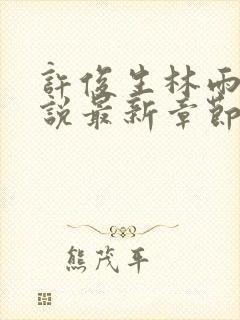 許俊生林雨
說最新章節
熊茂平